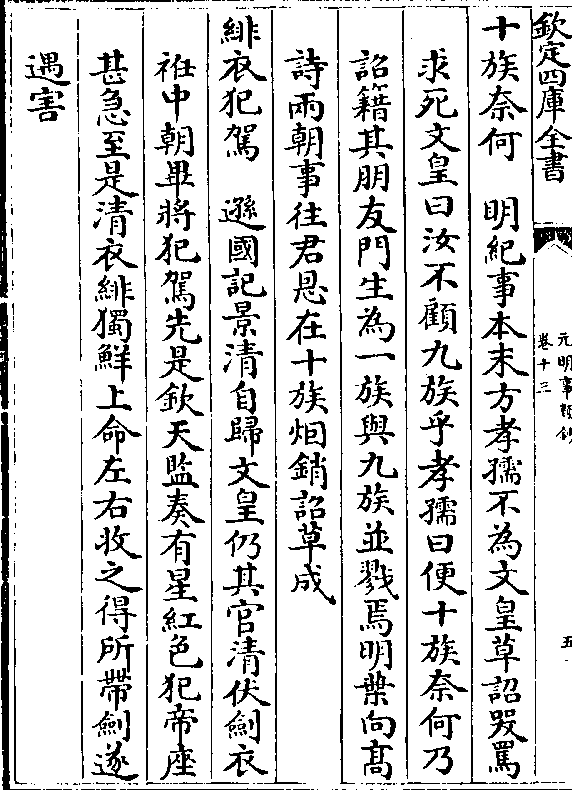 欽定四庫全書
元明事類鈔
卷十三
五
十族奈何　明紀事本末方孝孺不為文皇草詔哭罵
求死文皇曰汝不顧九族乎孝孺曰便十族奈何乃
詔籍其朋友門生為一族與九族並戮焉明葉向髙
詩兩朝事往君恩在十族烟銷詔草成
緋衣犯駕　遜國記景清自歸文皇仍其官清伏劍衣
袵中朝畢將犯駕先是欽天監奏有星紅色犯帝座
甚急至是清衣緋獨鮮上命左右收之得所帶劍遂
遇害